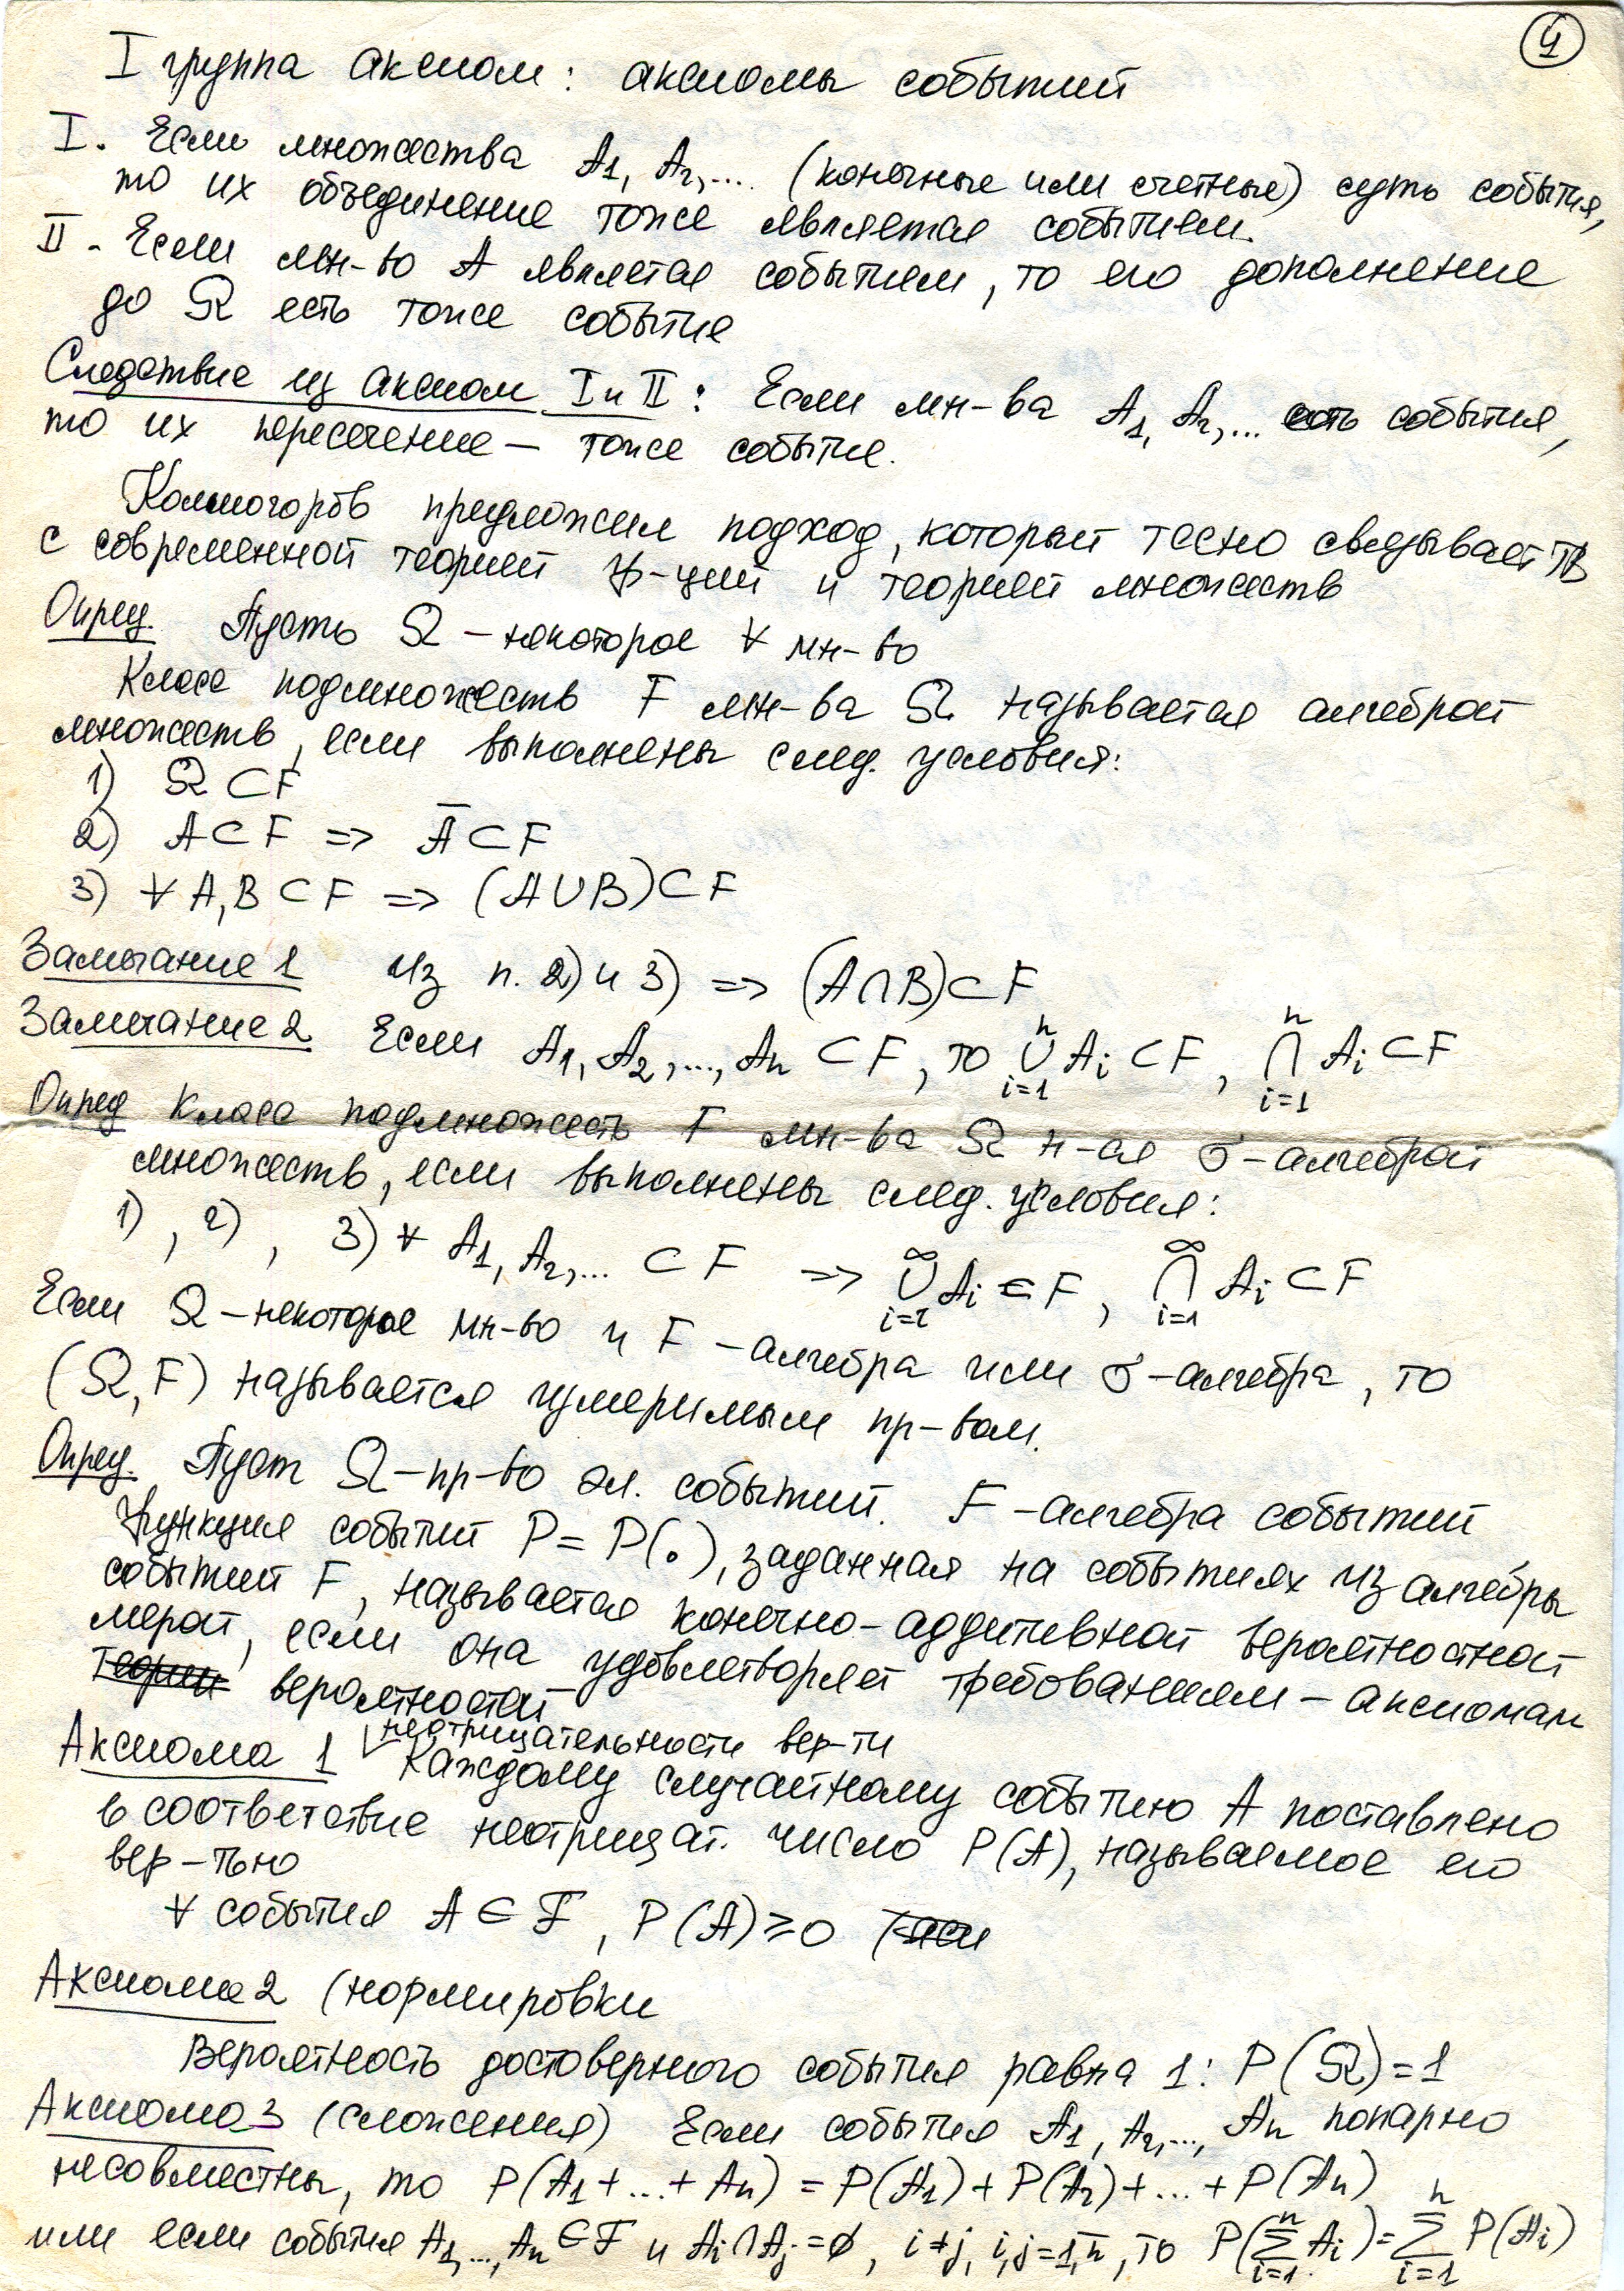 4
I группа аксиом: аксиомы событий
I. Если множества A1, A2,... (конечные или счетные) суть события,
то их объединение тоже является событием.
II. Если мн-во A является событием, то его дополнение
до Ω есть тоже событие
Следствие из аксиом I и II: Если мн-ва A1, A2,... есть события,
то их пересечение — тоже событие.
Колмогоров предложил подход, который тесно связывает ТВ
с современной теорией ф-ций и теорией множеств
Опред. Пусть Ω – некоторое ∀ мн-во
Класс подмножеств F мн-ва Ω называется алгеброй
множеств, если выполнены след. условия:
1) Ω ⊂ F
2) A ⊂ F => A̅ ⊂ F
3) ∀ A, B ⊂ F => (A∪B) ⊂ F
Замечание 1 Из п. 2) и 3) => (A∩B) ⊂ F
Замечание 2 Если A1, A2,..., An ⊂ F, то ⋃ⁿᵢ₌₁ Ai ⊂ F, ⋂ⁿᵢ₌₁ Ai ⊂ F
Опред Класс подмножеств F мн-ва Ω н-ся σ-алгеброй
множеств, если выполнены след. условия:
1), 2), 3) ∀ A1, A2,... ⊂ F => ⋃^∞ᵢ₌₁ Ai ∈ F, ⋂^∞ᵢ₌₁ Ai ⊂ F
Если Ω – некоторое мн-во и F – алгебра или σ-алгебра, то
(Ω, F) называется измеримым пр-вом.
Опред. Пуст Ω – пр-во эл. событий. F – алгебра событий
Функция событий P = P(.), заданная на событиях из алгебры
событий F, называется конечно-аддитивной вероятностной
мерой, если она удовлетворяет требованиям – аксиомам
теории вероятностей
Аксиома 1 неотрицательности вер-ти
Каждому случайному событию A поставлено
в соответствие неотрицат. число P(A), называемое его
вер-тью
∀ события A ∈ F, P(A) ≥ 0
Аксиома 2 (нормировки
Вероятность достоверного события равна 1: P(Ω) = 1
Аксиома 3 (сложения) Если события A1, A2,..., An попарно
несовместны, то P(A1 + ... + An) = P(A1) + P(A2) + ... + P(An)
или если события A1,..., An ∈ F и Ai ∩ Aj = ∅, i ≠ j, i,j = 1,n̅, то P(∑ⁿᵢ₌₁ Ai) = ∑ⁿᵢ₌₁ P(Ai)